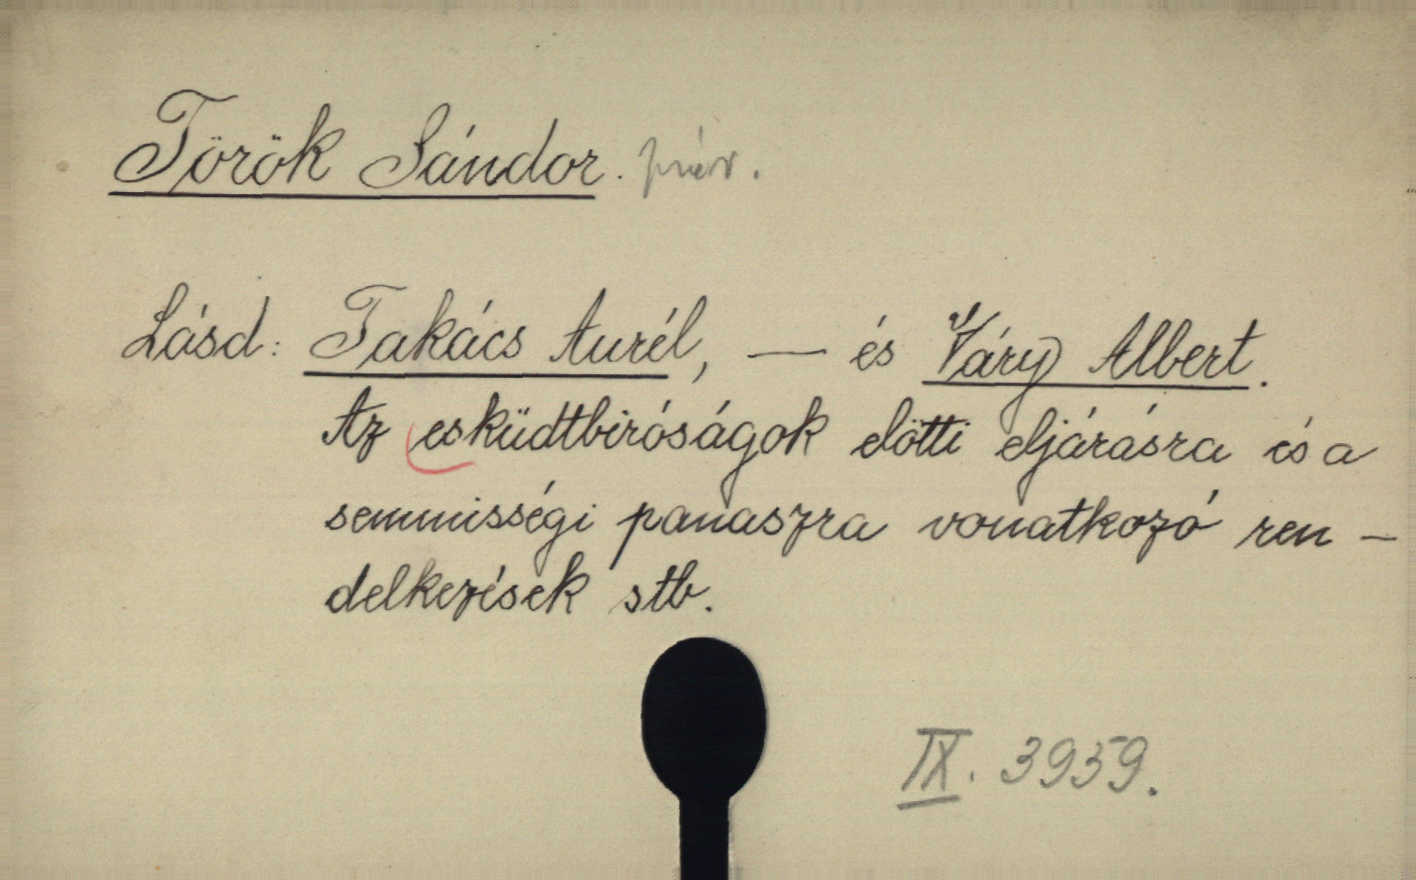 Török Sándor.
Lásd: Takács Aurél, — és Váry Albert.
Az esküdtbiróságok előtti eljárásra és a
semmisségi panaszra vonatkozó ren-
delkezések stb.
IX. 3959.